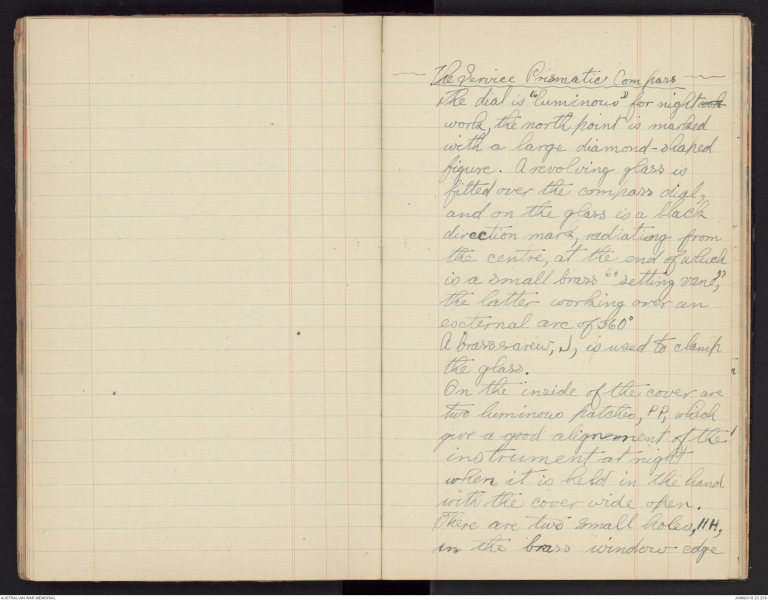 The Service Prismatic Compass
The dial is "luminous" for night work
work, the north point is marked
with a large diamond-shaped
figure. A revolving glass is
fitted over the compass dial,
and on the glass is a black
direction mark, radiating from
the centre, at the end of which
is a small brass "setting vane",
the latter working over an
external arc of 360°
A brass screw, J, is used to clamp
the glass.
On the inside of the cover are
two luminous patches, PP, which
give a good alignment of the
instrument at night
when it is held in the hand
with the cover wide open.
There are two small holes, HH,
in the brass window edge
AUSTRALIAN WAR MEMORIAL